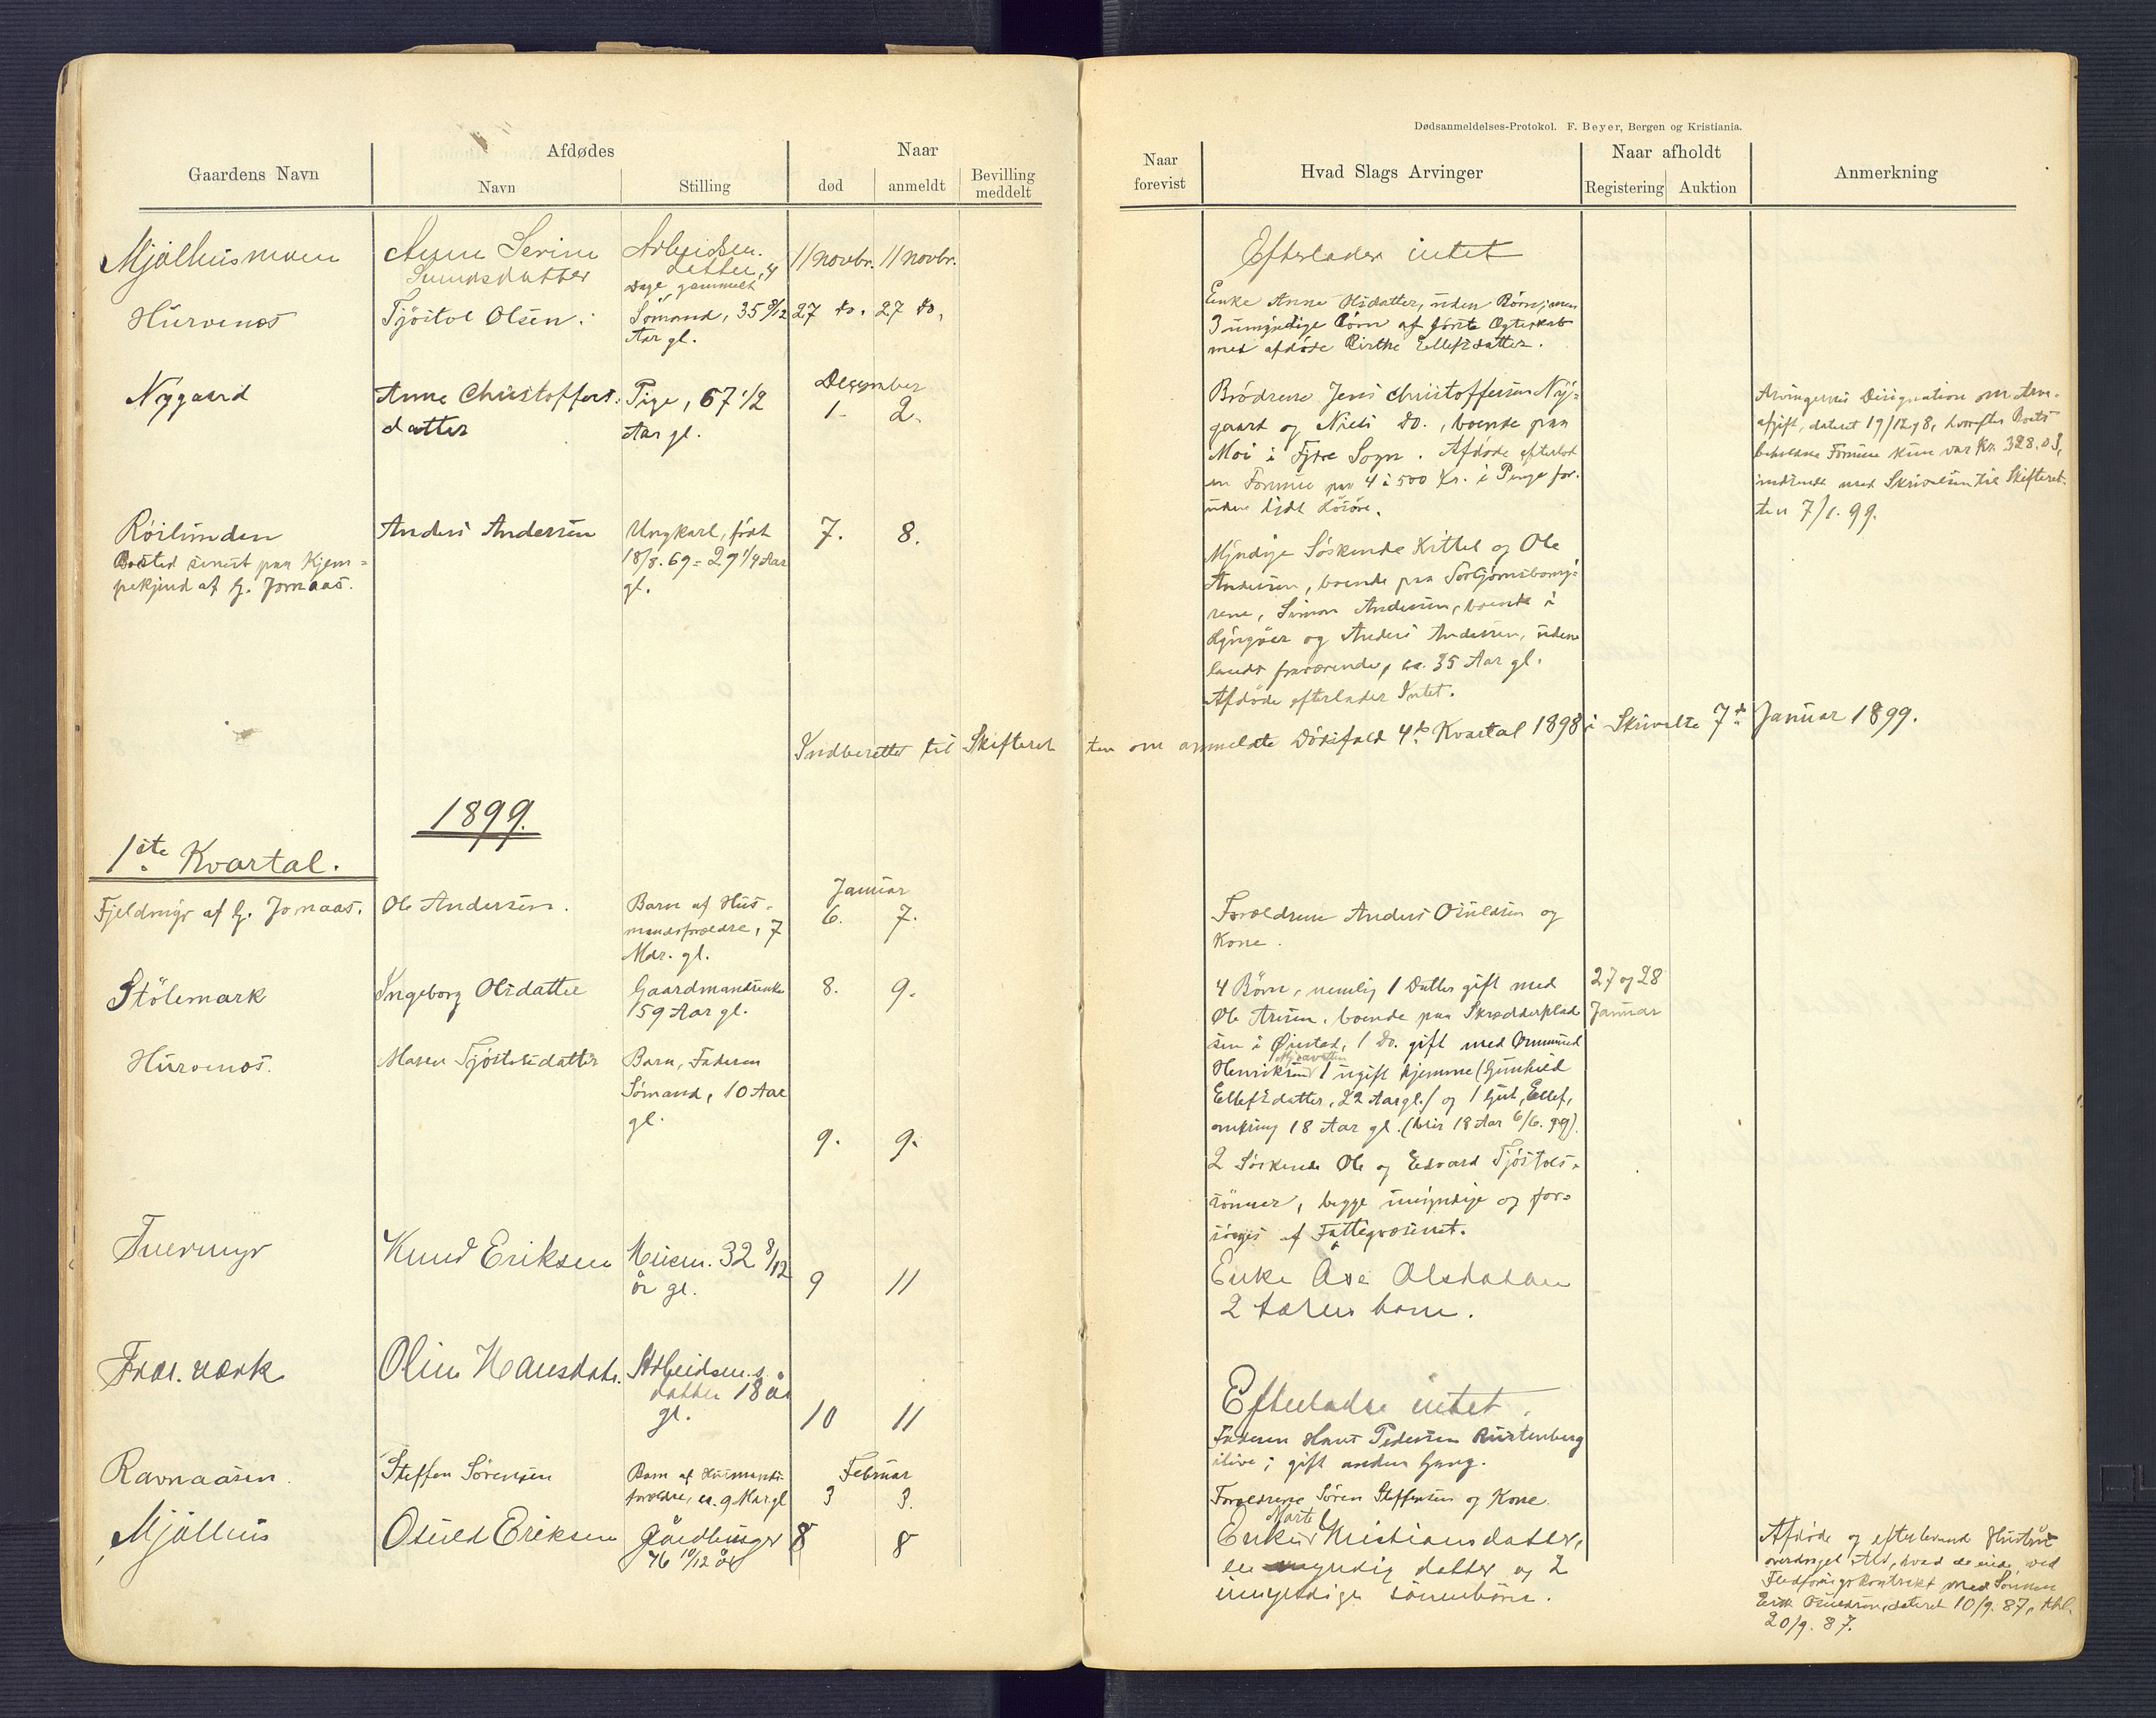 Dødsanmeldelses-Protokol. F. Beyer, Bergen og Kristiania.
Gaardens Navn
Afdødes
Navn
Stilling
Naar
død
anmeldt
Bevilling
meddelt
Naar
forevist
Hvad Slags Arvinger
Naar afholdt
Registering
Auktion
Anmerkning
Mjålhusmoen
Anne Serine
datter
Arbeidsm.
datter, 4
Dage gammelt
11 novbr. 11 novbr.
Efterlader intet
Hurvenes
Tjöstol Olsen.
Sömand, 35 9/12
Aar gl.
27 do. 27 do.
Enke Anne Olsdatter, uden Börn; men
3 umyndige Börn af förste Ægteskab
med afdöde Birthe Ellefsdatter.
Nygaard
Anne Christoffers-
datter
Pige, 67 1/2
Aar gl.
December
1. 2.
Brödrene Jens Christoffersen Ny-
gaard og Niels do., boende paa
Moi i Fjære Sogn. Afdöde efterlod
en Formue paa 4 à 500 Kr. i Penge for-
uden lidt Lösöre.
Arvingernes Designation om Arve-
afgift, dateret 19/12 98, hvorefter Boets
beholdne Formue kun var Kr. 328.03,
indsendt med Skrivelse til Skifteret-
ten 7/1. 99.
Röilunden
Bosted senest paa Kjem-
pekjend af G. Jomaas.
Anders Andersen
Ungkarl, født
18/8. 69 = 29 1/4 Aar
gl.
7. 8.
Myndige Söskende Kittel og Ole
Andersen, boende paa
rene, Simon Andersen, boende i
Lyngöer og Anders Andersen, uden-
lands fraværende, ca. 35 Aar gl.
Afdöde efterlader Intet.
Indberettet til Skifteretten om anmeldte Dödsfald 4de Kvartal 1898 i Skrivelse 7de Januar 1899.
1899.
1ste Kvartal.
Fjeldmyr af G. Jomaas.
Ole Andersen.
Barn af Hus-
mandsforældre, 7
Mdr. gl.
Januar
6. 7.
Forældrene Anders Osuldsen og
Kone.
Stölemark
Ingeborg Olsdatter
Gaardmandsenke
59 Aar gl.
8. 9.
4 Börn, nemlig 1 Datter gift med
Ole Aresen, boende paa Skrædderplad-
sen i Øiestad, 1 Do. gift med Ormund
Henriksen 1 ugift hjemme (Gunhild
Ellefsdatter, 22 Aar gl.) og 1 Gut, Ellef,
omkring 18 Aar gl. (blir 18 Aar 6/6. 99).
27 og 28
Januar
Hurvenes.
Maren Tjöstolsdatter
Barn, Faderen
Sömand, 10 Aar
gl.
9. 9.
2 Söskende Ole og Edvard Tjöstols-
sönner, begge umyndige og for-
sörges af Fattigvæsenet.
Tvermyr
Knud Eriksen
Husm. 32 8/12
år gl.
9 11
Enke Åse Olsdatter
2 barn.
Fros. værk
Oline Hansdatr.
Arbeidsm.s
datter 18 år
gl.
10 11
Efterlader intet.
Faderen Hans Pedersen Rustenberg
ilive; gift anden Gang.
Ravnaasen.
Steffen Sörensen
Barn af Husmands-
forældre, ca. 9 Aar gl
Februar
3 3.
Forældrene Sören Steffensen og Kone.
Mjålhus
Osuld Eriksen
Gårdbruger
76 10/12 år
8 8
Marte
Enke Kristiansdatter,
en myndig datter og 2
umyndige sönnebörn.
Afdöde og efterlevende Hustru
overdraget Alt, hvad de eiede, ved
Födforingskontrakt med Sönnen
Erik Osuldsen, dateret 10/9. 87, thl.
20/9. 87.